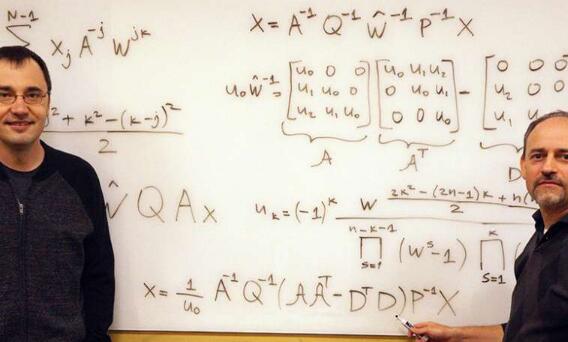 N-1
∑ x_j A^{-j} W^{jk}
X = A^{-1} Q^{-1} Ŵ^{-1} P^{-1} X
² + k² - (k-j)²
2
u₀ Ŵ^{-1} = [u₀ 0 0; u₁ u₀ 0; u₂ u₁ u₀] [u₀ u₁ u₂; 0 u₀ u₁; 0 0 u₀] - [0 0 0; u₂ 0 0; u₁ u₂
A A^T D
Ŵ Q A x
u_k = (-1)^k W^{(2k² - (2n-1)k + n(n
2
n-k-1 k
∏ (W^s - 1) ∏ (
s=1 s=1
x = 1/u₀ A^{-1} Q^{-1} (A A^T - D^T D) P^{-1} X